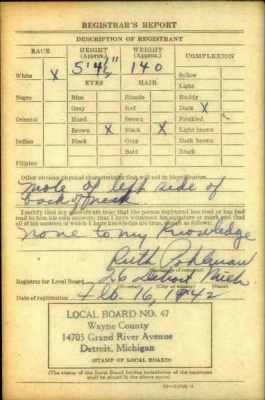 REGISTRAR'S REPORT
DESCRIPTION OF REGISTRANT
RACE HEIGHT (Approx.) WEIGHT (Approx.) COMPLEXION
White X 5'4½" 140 Sallow
EYES HAIR Light
Negro Blue Blonde Ruddy
Gray Red Dark X
Oriental Hazel Brown Freckled
Brown X Black X Light brown
Indian Black Gray Dark brown
Bald Black
Filipino
Other obvious physical characteristics that will aid in identification
mole on left side of
back of neck
I certify that my answers are true; that the person registered has read or has had
read to him his own answers; that I have witnessed his signature or mark and that
all of his answers of which I have knowledge are true, except as follows:
None to my knowledge
Ruth Pohlman
Registrar for Local Board 26 Detroit Mich
(Number) (City or county) (State)
Date of registration Feb. 16, 1942
LOCAL BOARD NO. 47
Wayne County
14705 Grand River Avenue
Detroit, Michigan
(STAMP OF LOCAL BOARD)
(The stamp of the Local Board having jurisdiction of the registrant
shall be placed in the above space.)